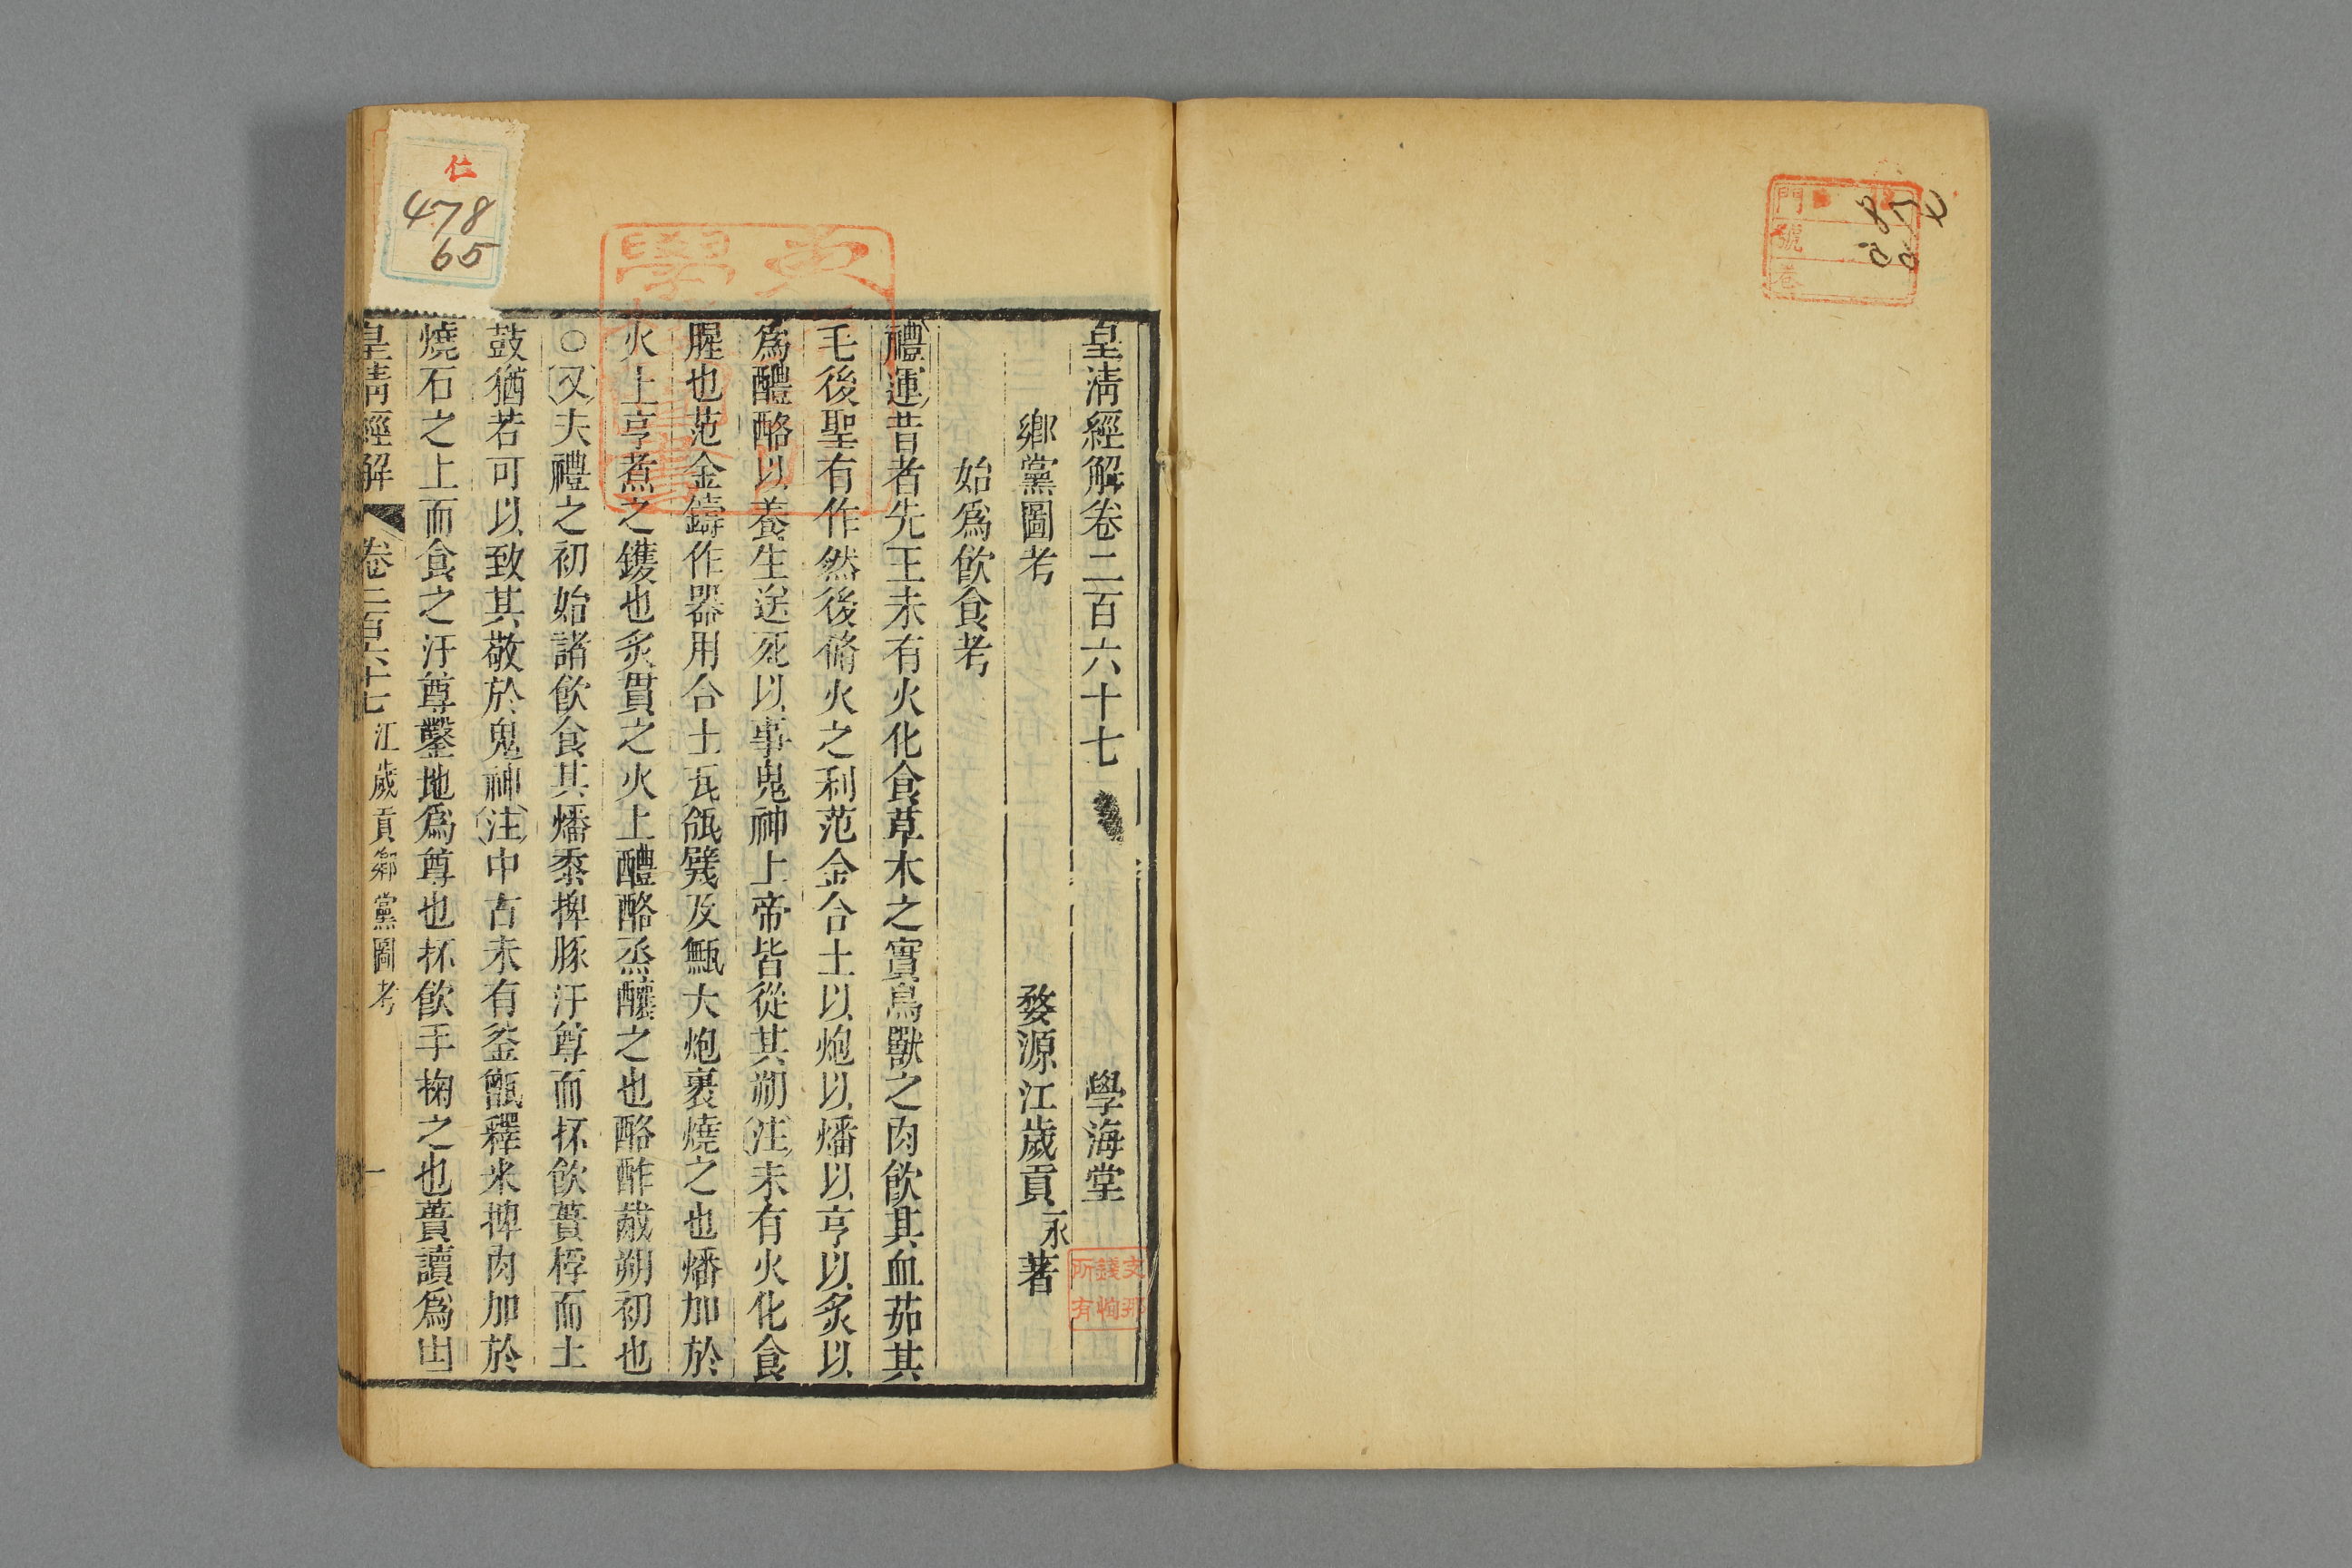 門
號
卷
皇清經解卷二百六十七 學海堂
鄉黨圖考 婺源江歲貢永著
始爲飲食考
禮運昔者先王未有火化食草木之實鳥獸之肉飲其血茹其
毛後聖有作然後脩火之利范金合土以炮以燔以亨以炙以
爲醴酪以養生送死以事鬼神上帝皆從其朔注未有火化食
腥也范金鑄作器用合土瓦瓴甓及甒大炮裹燒之也燔加於
火上亨煮之鑊也炙貫之火上醴酪烝釀之也酪酢酨朔初也
○又夫禮之初始諸飲食其燔黍捭豚汙尊而抔飲蕢桴而土
鼓猶若可以致其敬於鬼神注中古未有釜甑釋米捭肉加於
燒石之上而食之汙尊鑿地爲尊也抔飲手掬之也蕢讀爲凷
皇清經解 卷二百六十七 江歲貢鄉黨圖考 一
仁
478
65
所有